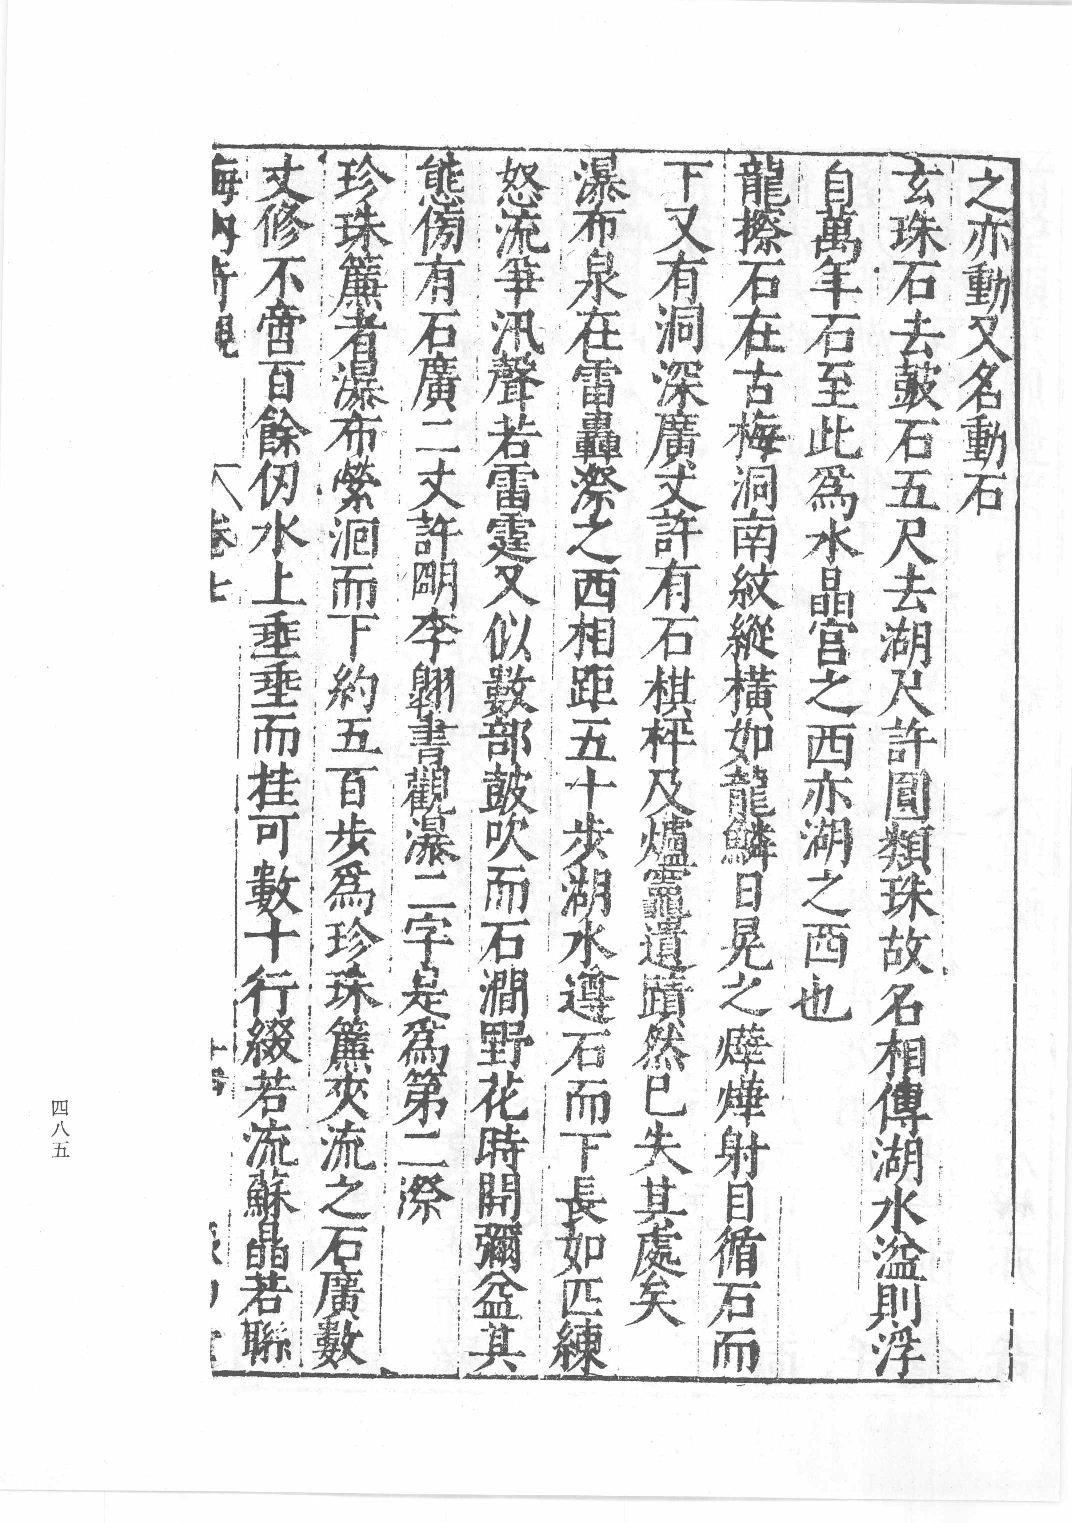 之亦動又名動石
玄珠石去鼓石五尺去湖尺許圓類珠故名相傳湖水溢則浮
自萬年石至此爲水晶宮之西亦湖之西也
龍擦石在古梅洞南紋縱橫如龍鱗日晃之燁燁射目循石而
下又有洞深廣丈許有石棋枰及爐竈遺蹟然已失其處矣
瀑布泉在雷轟漈之西相距五十步湖水遵石而下長如匹練
怒流爭汛聲若雷霆又似數部鼓吹而石澗野花時開彌益其
態傍有石廣二丈許明李翱書觀瀑二字是爲第二漈
珍珠簾者瀑布縈洄而下約五百步爲珍珠簾夾流之石廣數
丈修不啻百餘仞水上垂垂而挂可數十行綴若流蘇晶若聯
海內奇觀
卷七
四八五